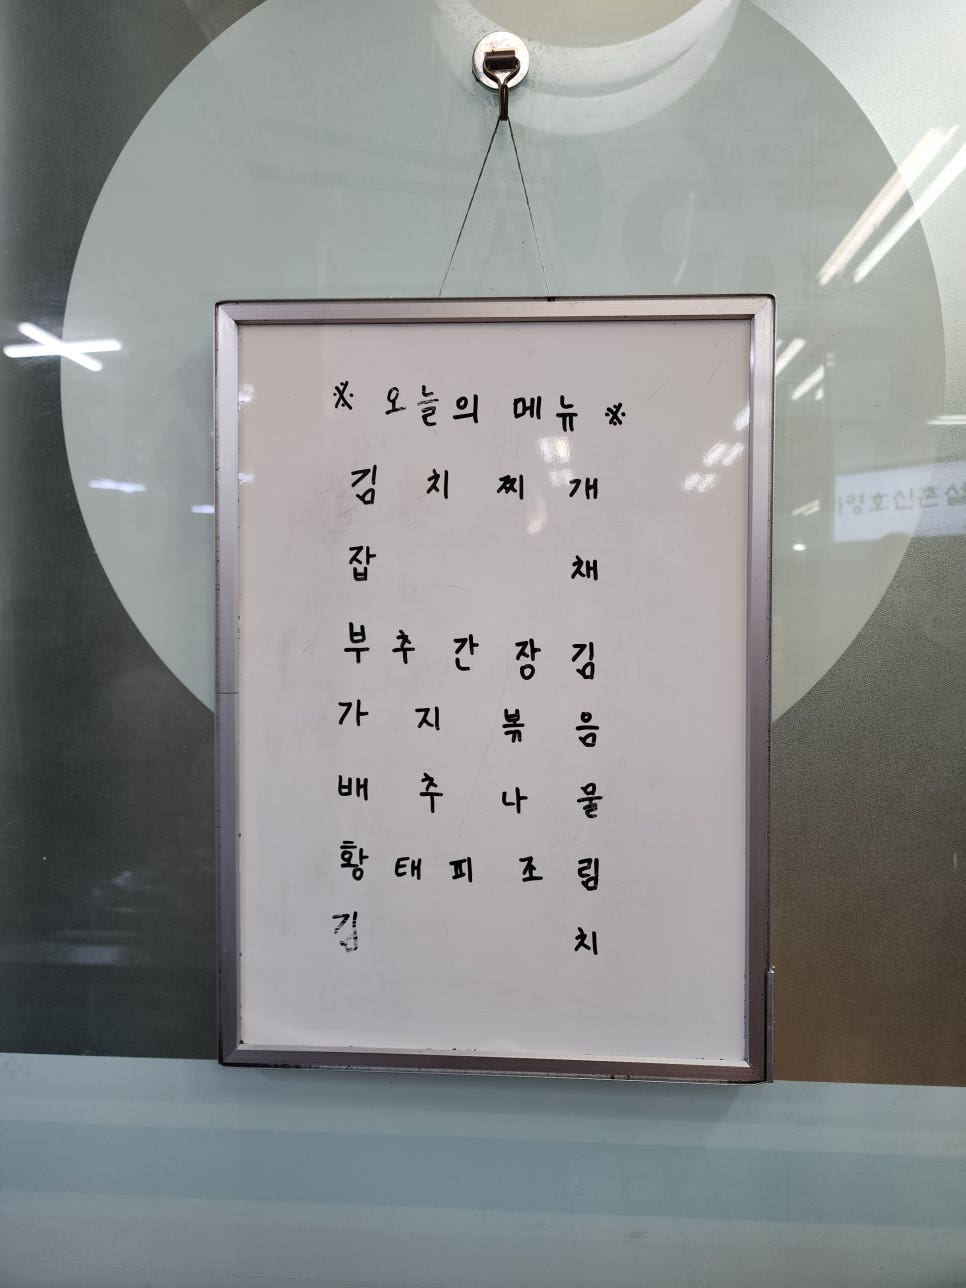 ※ 오늘의 메뉴 ※
김치찌개
잡채
부추간장김
가지볶음
배추나물
황태피조림
김치